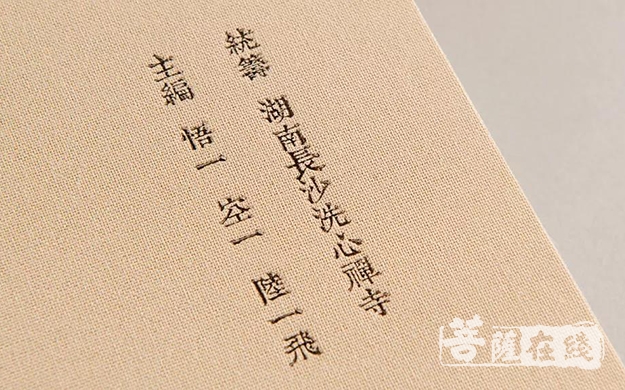 統籌 湖南長沙洗心禪寺
主編 悟一 空一 陸一飛
菩薩在线